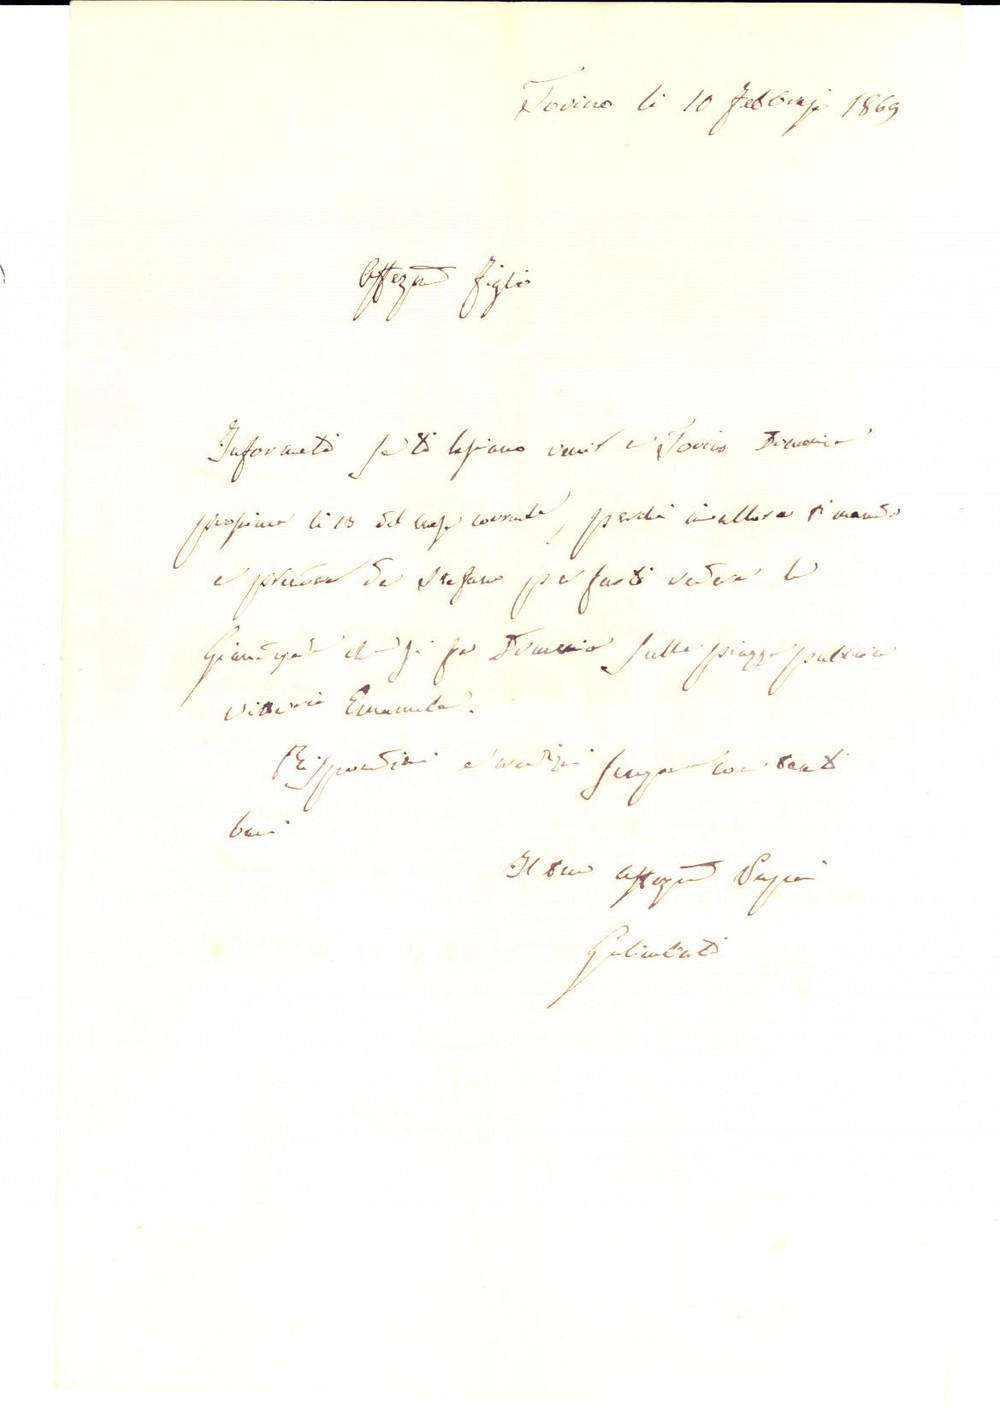 Torino li 10 Febbrajo 1869
Affezmo figlio
Informati se ti lasciano venir a Torino Domenica
prossima li 13 del mese corrente, perchè in allora ti mando
a prendere da Stefano per farti vedere la
che si fa Domenica sulla piazza pubblica
Vittorio Emanuele.
Rispondimi e sempre con tanti
baci
Il tuo affezmo